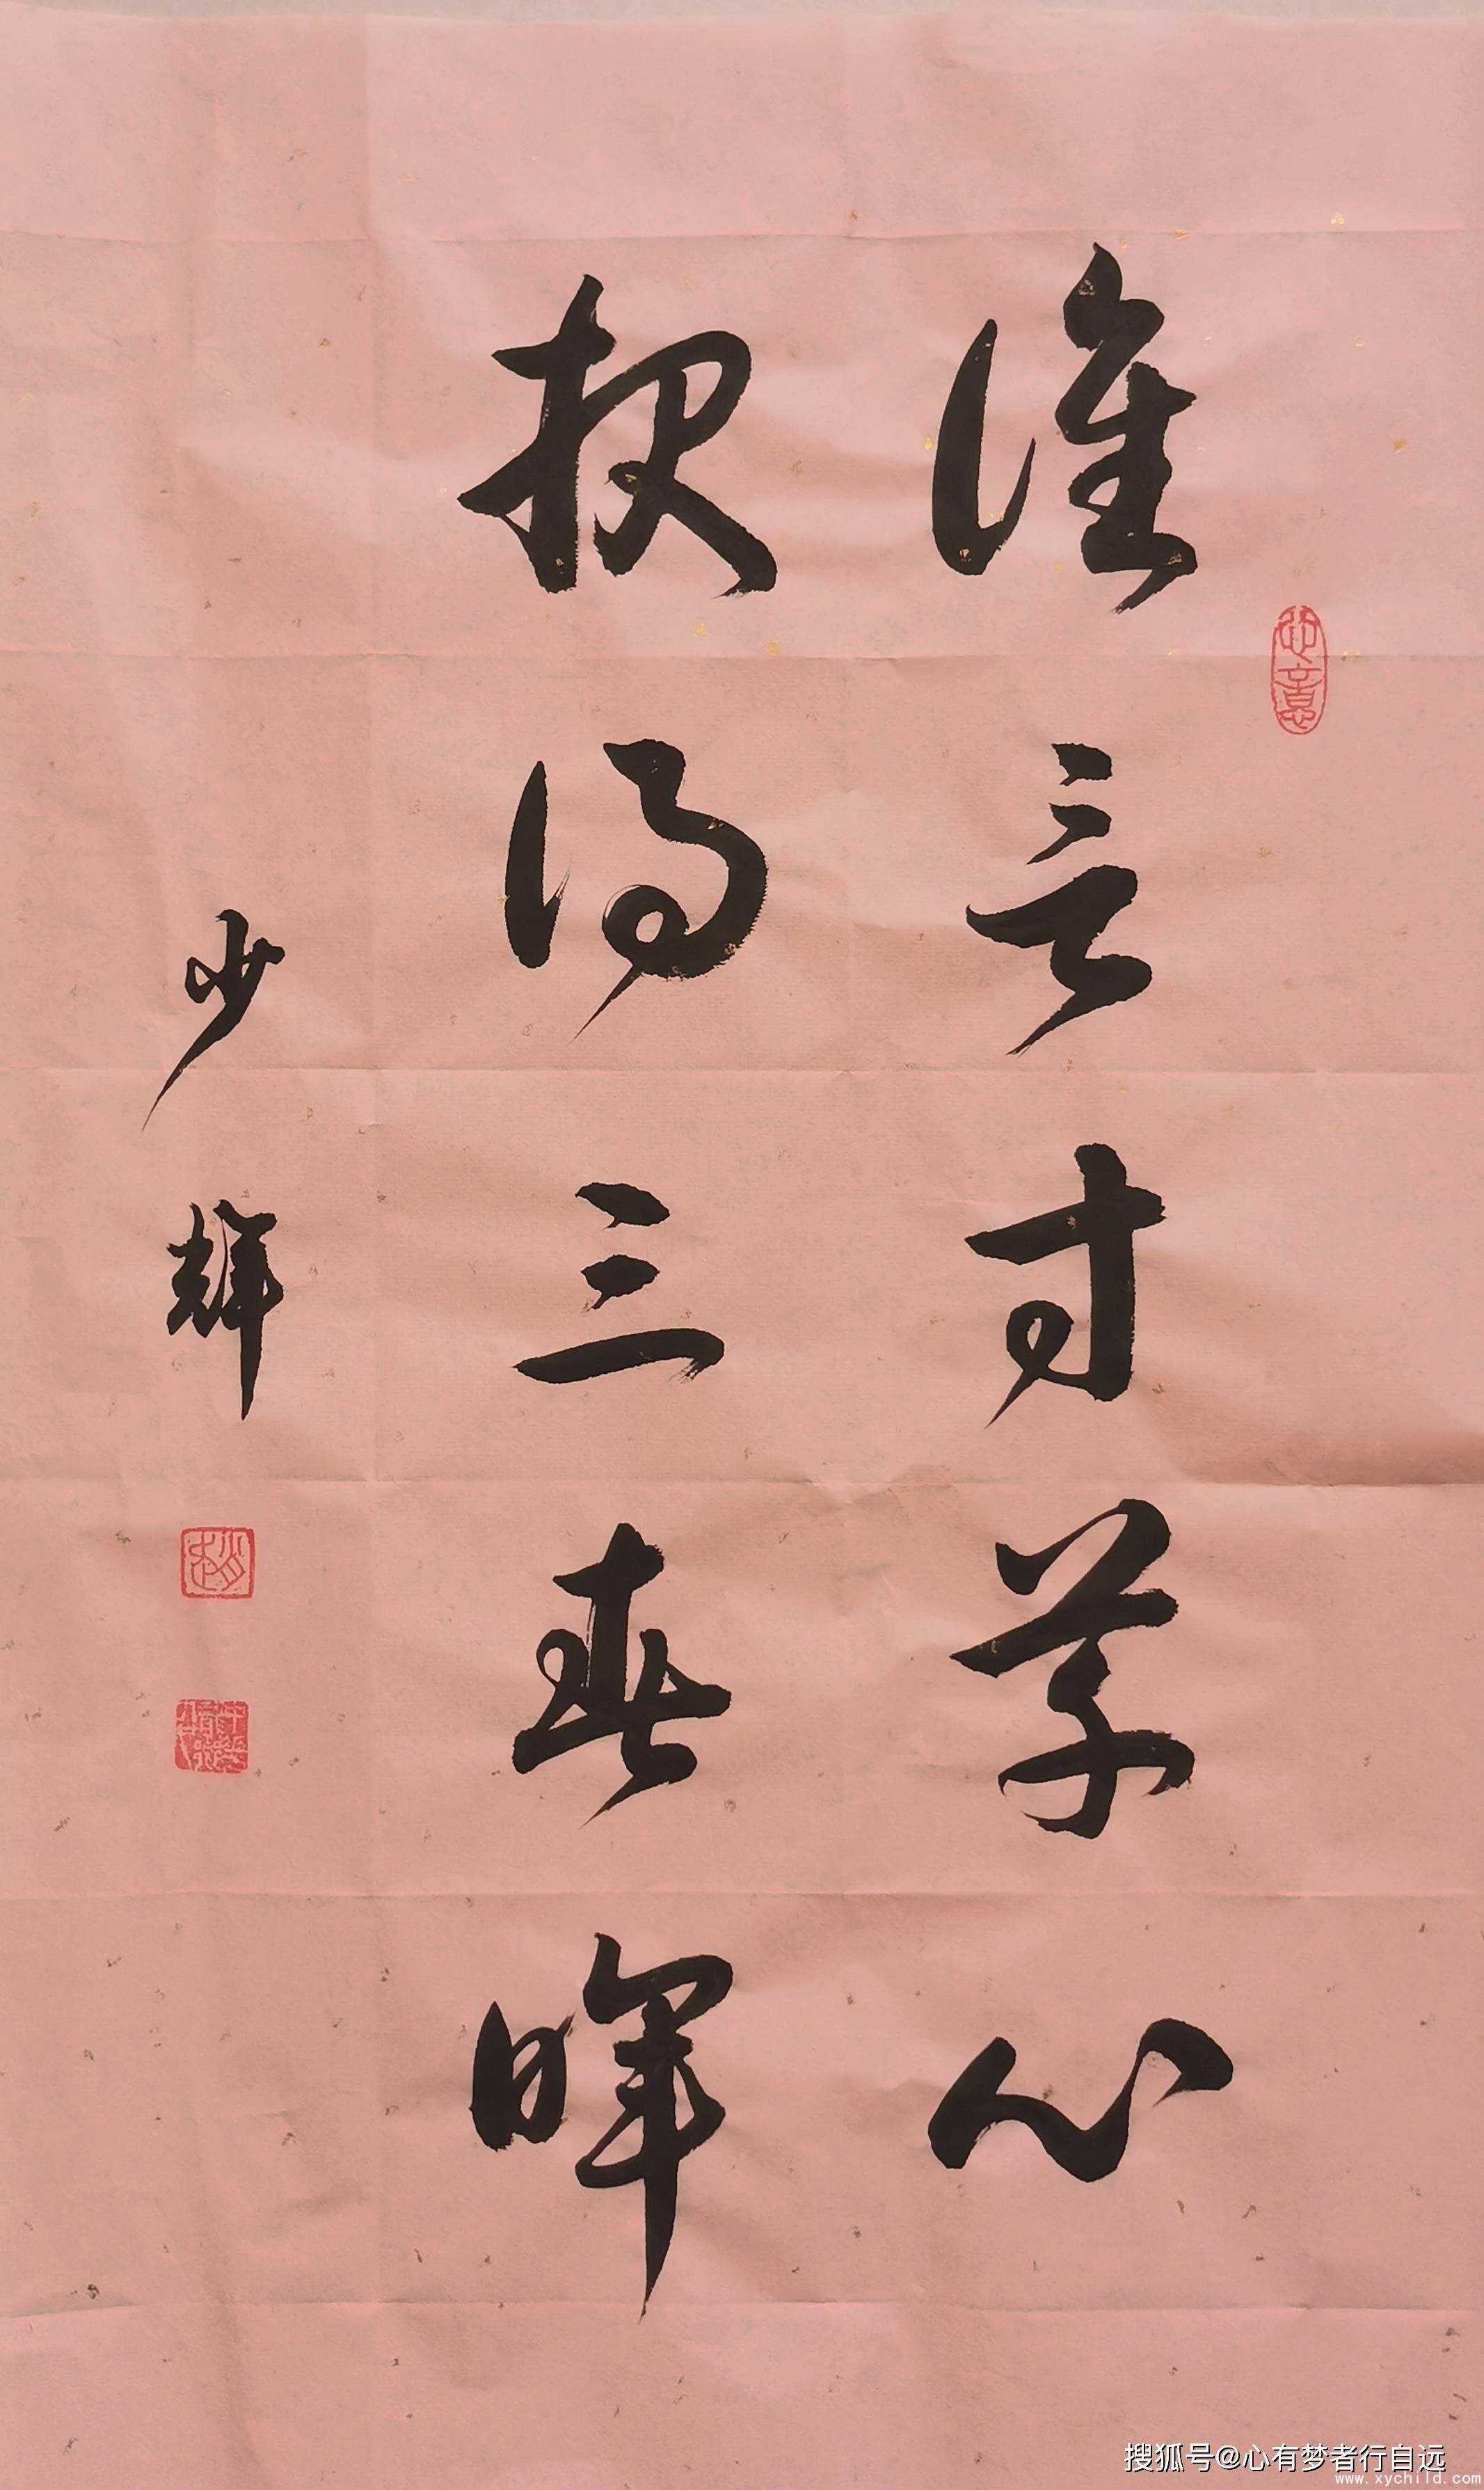 谁言寸草心
报得三春晖
少辉
搜狐号@心有梦者行自远
www.xychild.com